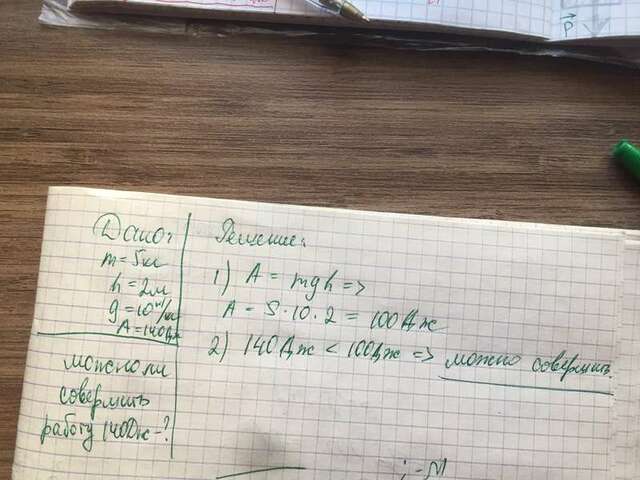 Дано:
m=5кг
h=2м
g=10м/
A=140Дж
можно ли
совершить
работу 140Дж-?
Решение:
1) A = mgh =>
A = 5·10·2 = 100Дж
2) 140Дж < 100Дж => можно соверш
P